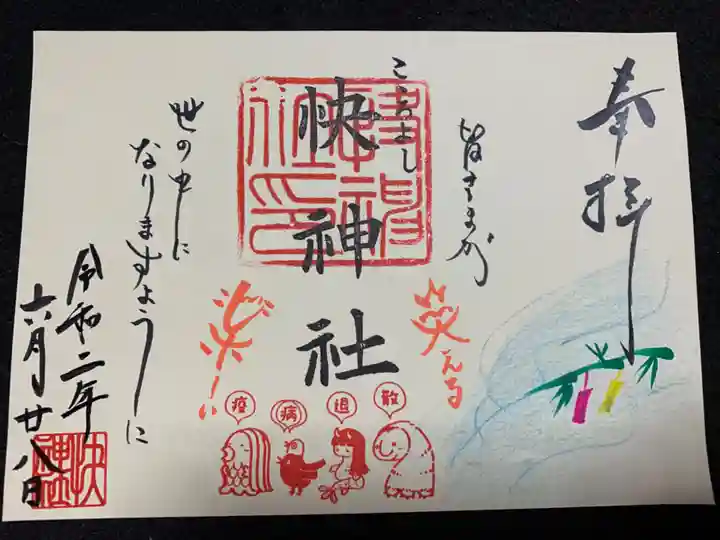 奉拝
皆さまが
こころよし
快神社
笑える
楽しい
世の中に
なりますように
令和二年
六月廿八日
疫
病
退
散
快神社